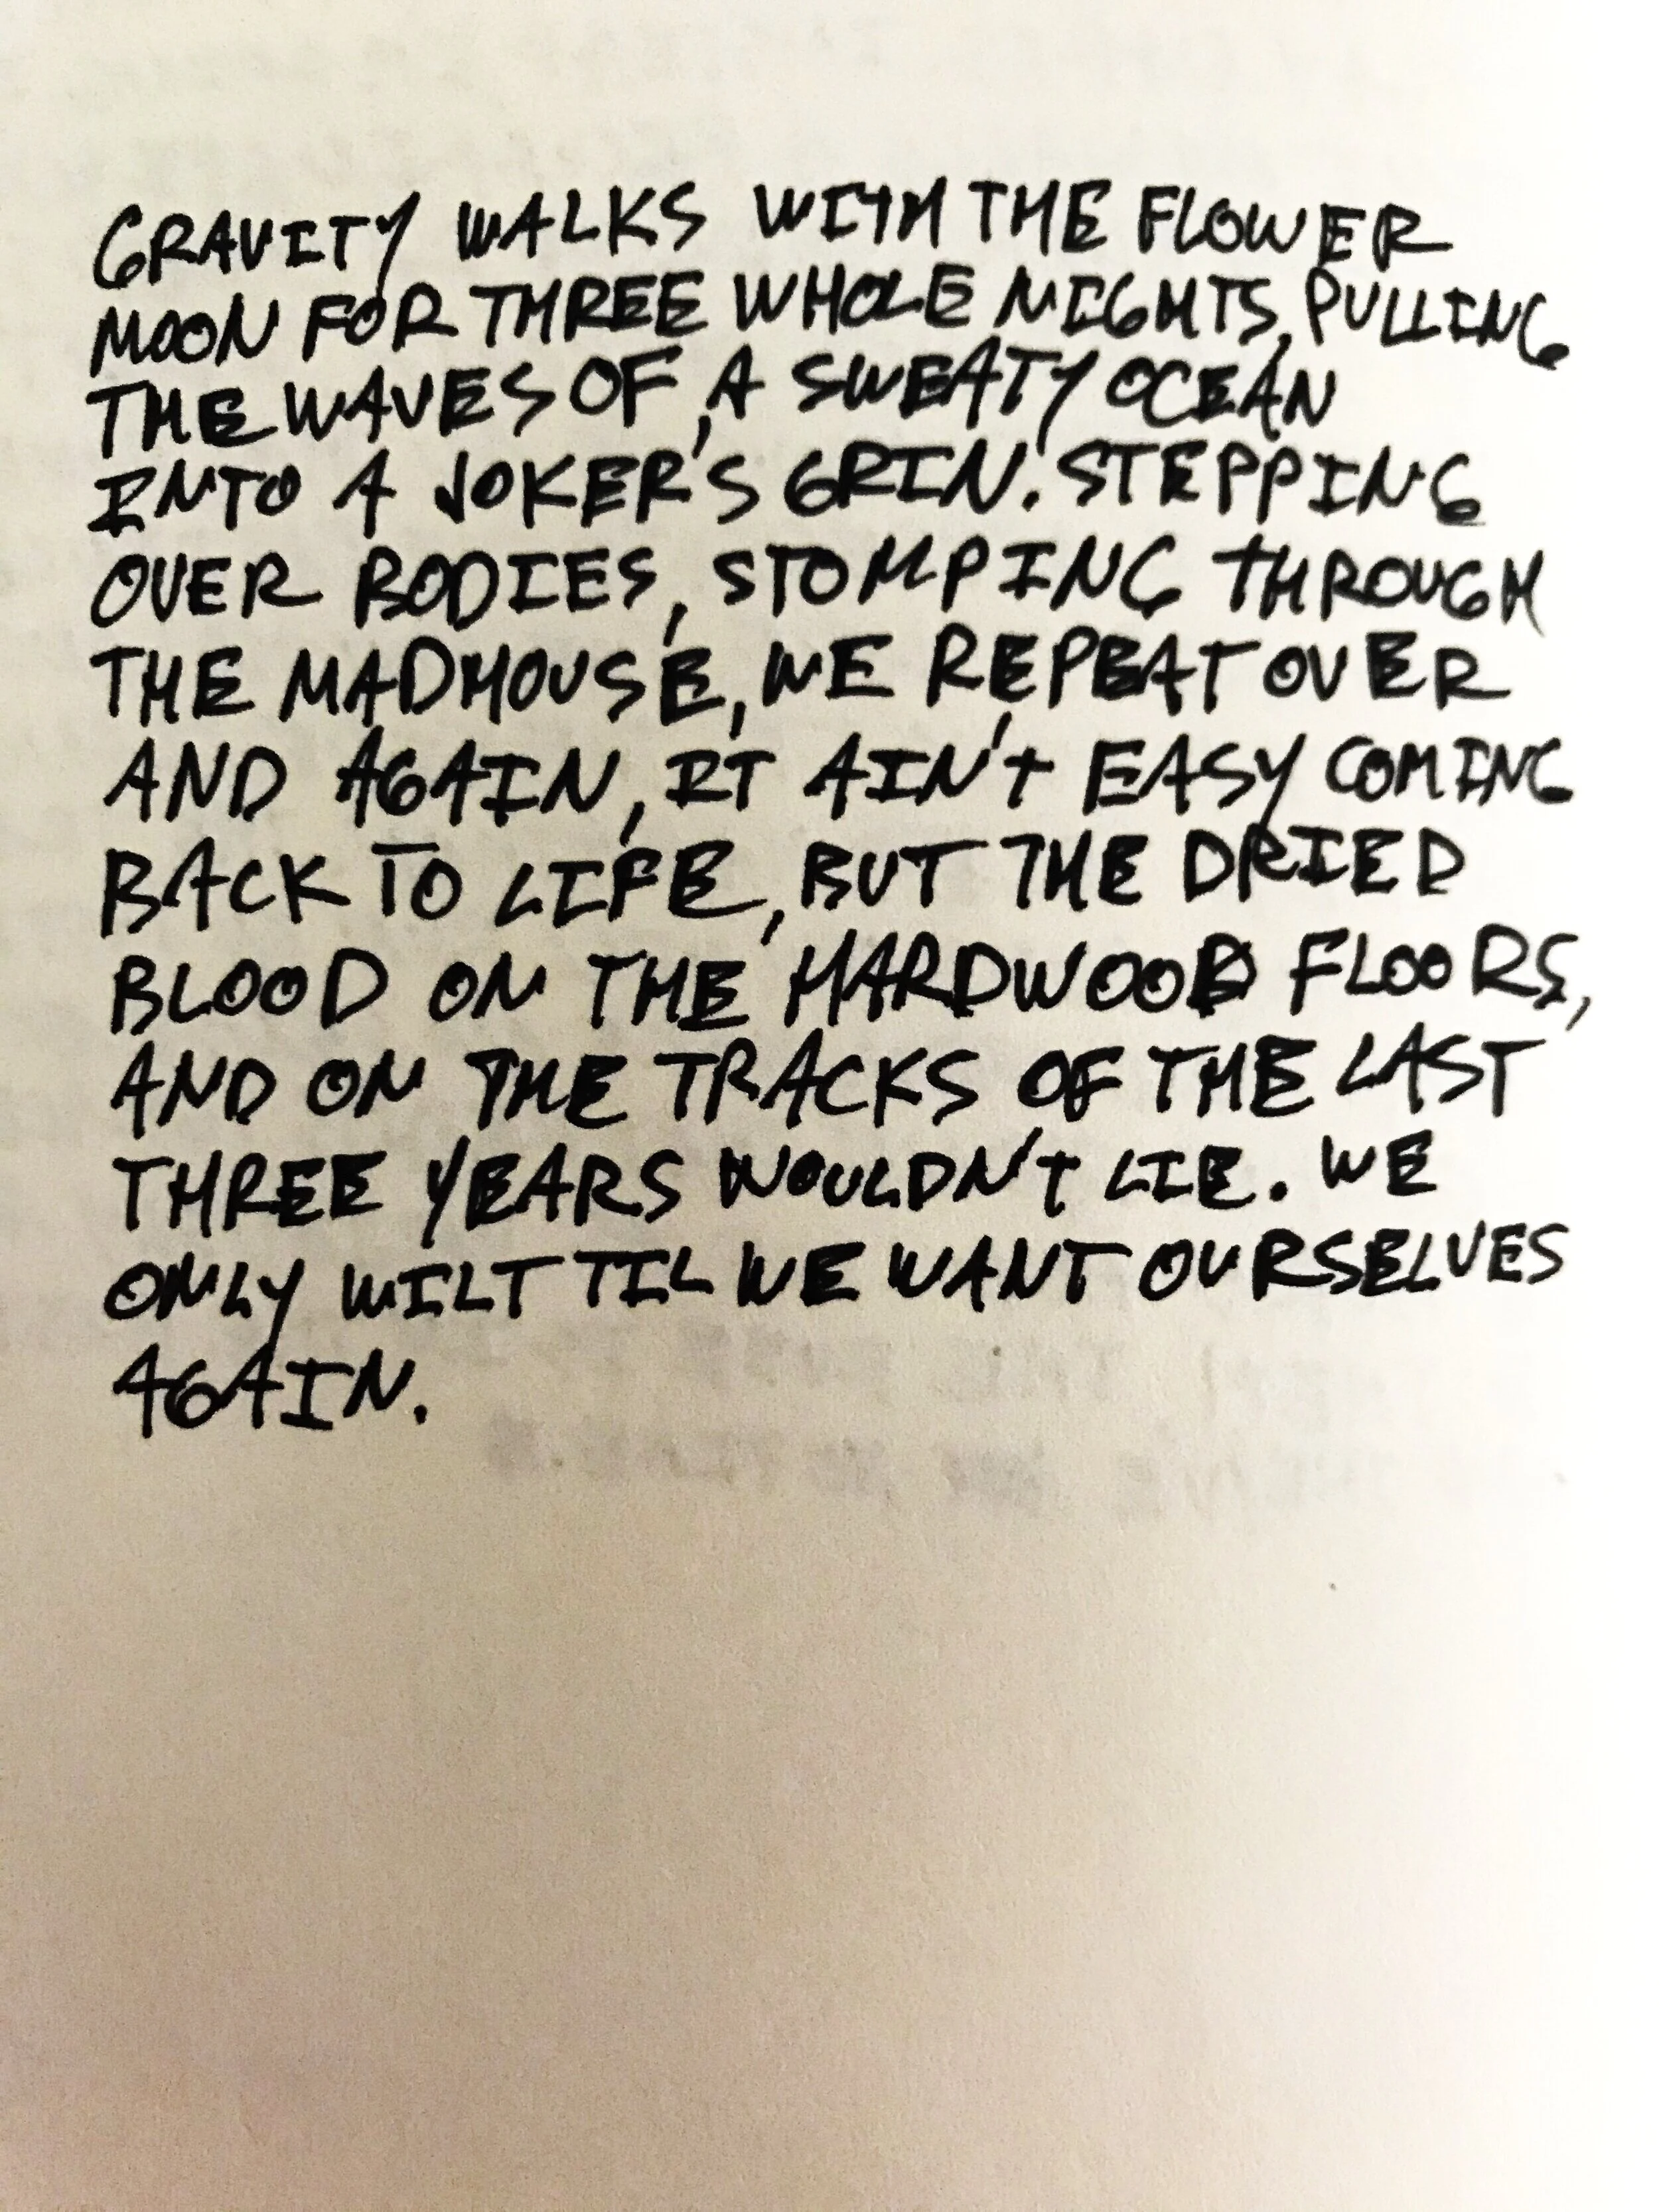 GRAVITY WALKS WITH THE FLOWER
MOON FOR THREE WHOLE NIGHTS, PULLING
THE WAVES OF A SWEATY OCEAN
INTO A JOKER'S GRIN. STEPPING
OVER BODIES, STOMPING THROUGH
THE MADHOUSE, WE REPEAT OVER
AND AGAIN, IT AIN'T EASY COMING
BACK TO LIFE, BUT THE DRIED
BLOOD ON THE HARDWOOD FLOORS,
AND ON THE TRACKS OF THE LAST
THREE YEARS WOULDN'T LIE. WE
ONLY WILT TIL WE WANT OURSELVES
AGAIN.